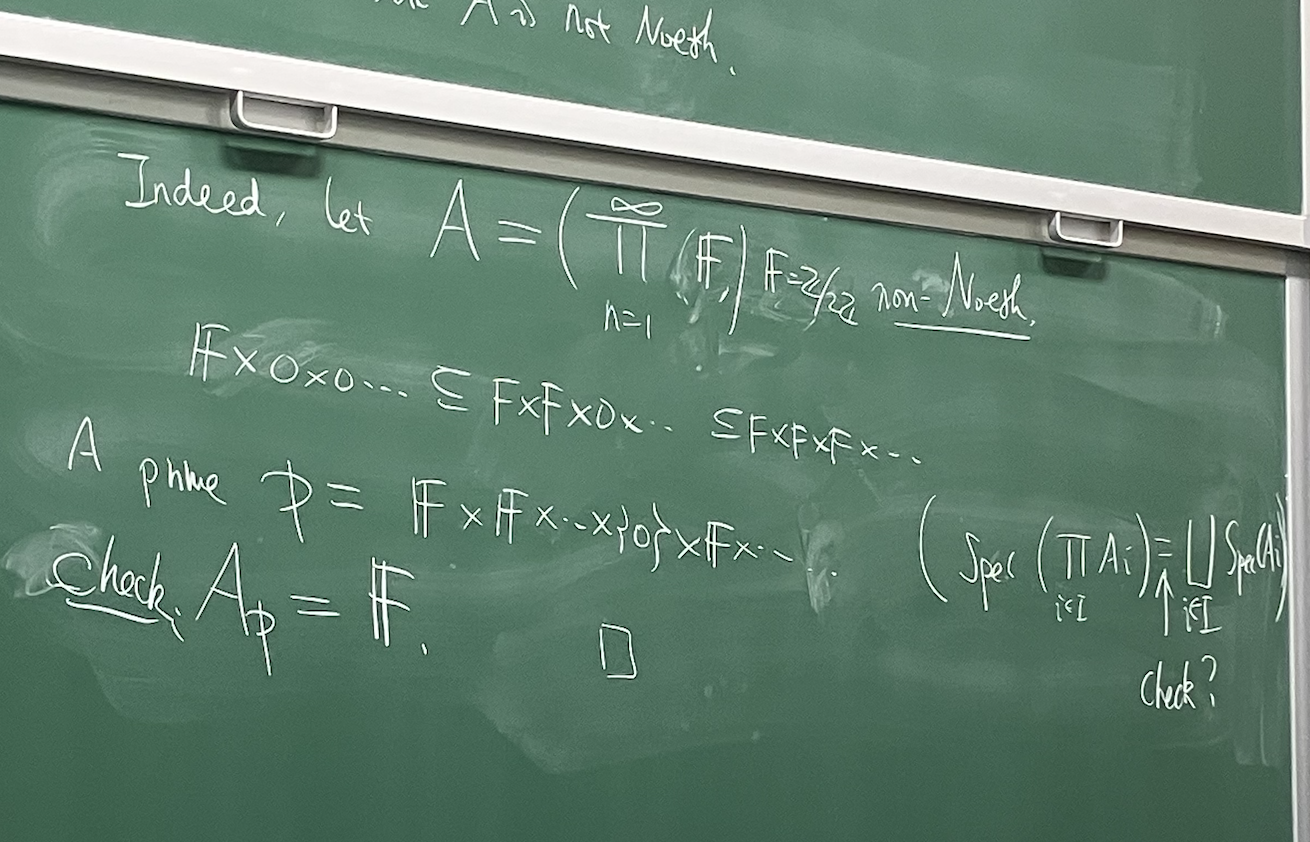 A is not Noeth.
Indeed, let A = ( ∏_{n=1}^{∞} 𝔽 ) 𝔽=ℤ/2ℤ non-Noeth.
𝔽×0×0... ⊆ F×F×0×.. ⊆ F×F×F×...
A prime 𝔭 = 𝔽×𝔽×..×{0}×F×...
(Spec (∏_{i∈I} A_i) = ⨆_{i∈I} Spec(A_i)
↑
check?
Check: A_𝔭 = 𝔽. □